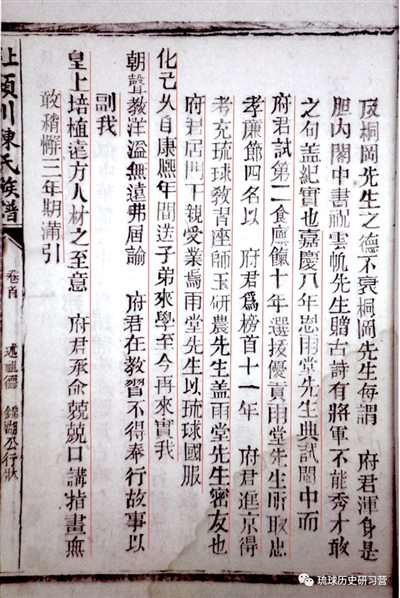 及桐岡先生之德不衰桐岡先生每謂　府君渾身是
胆内閣中書祝雲帆先生贈古詩有將軍不能秀才敢
之句盖紀實也嘉慶八年恩雨堂先生典試閩中而
府君試第二食廩餼十年選拔優貢雨堂先生所取忠
孝廉節四名以　府君爲榜首十一年　府君進京得
考充琉球教習座師玉研農先生盖雨堂先生密友也
府君居門下親愛業焉雨堂先生以琉球國服
化已久自康熈年間送子弟來學至今再來實我
朝聲教洋溢無遠弗屆諭　府君在教習不得奉行故事以
副我
皇上培植遠方人材之至意　府君承命兢兢口講指畫無
敢稍懈三年期滿引
上頴川陳氏族譜
卷首
述祖德
錦湖公行狀
琉球历史研习营